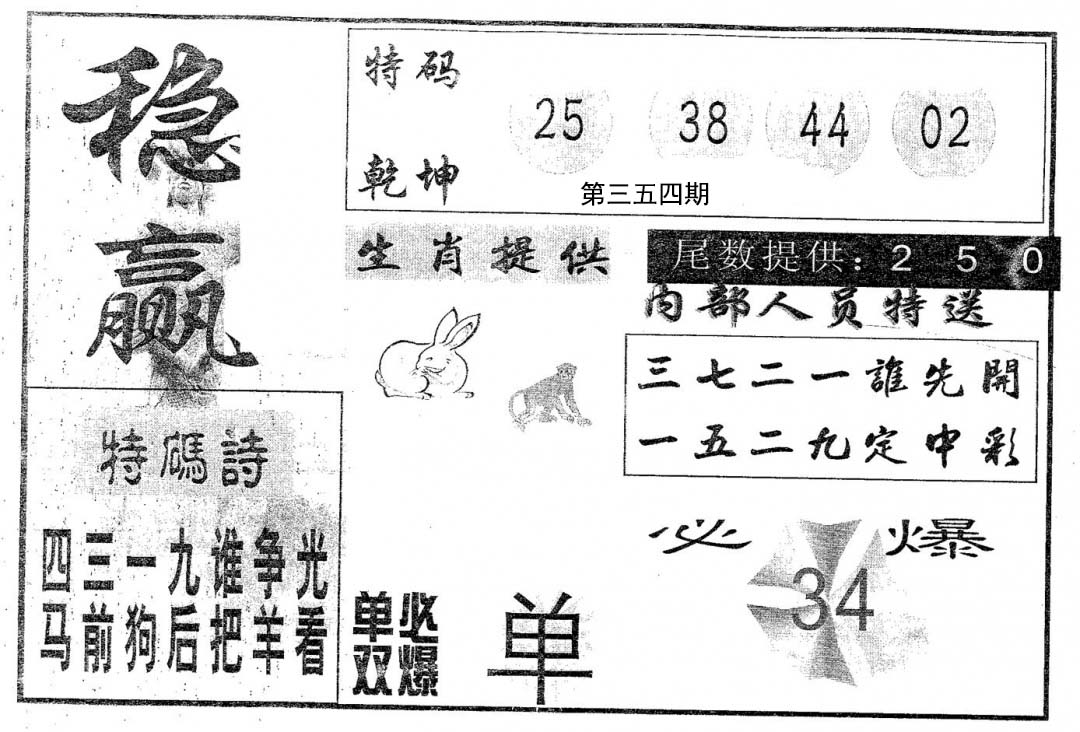 稳
赢
特码
25 38 44 02
乾坤
第三五四期
生肖提供
尾数提供：2 5 0
内部人员特送
三七二一誰先開
一五二九定中彩
特碼詩
四三一九谁争光
马前狗后把羊看
必爆
34
单双
必爆
单